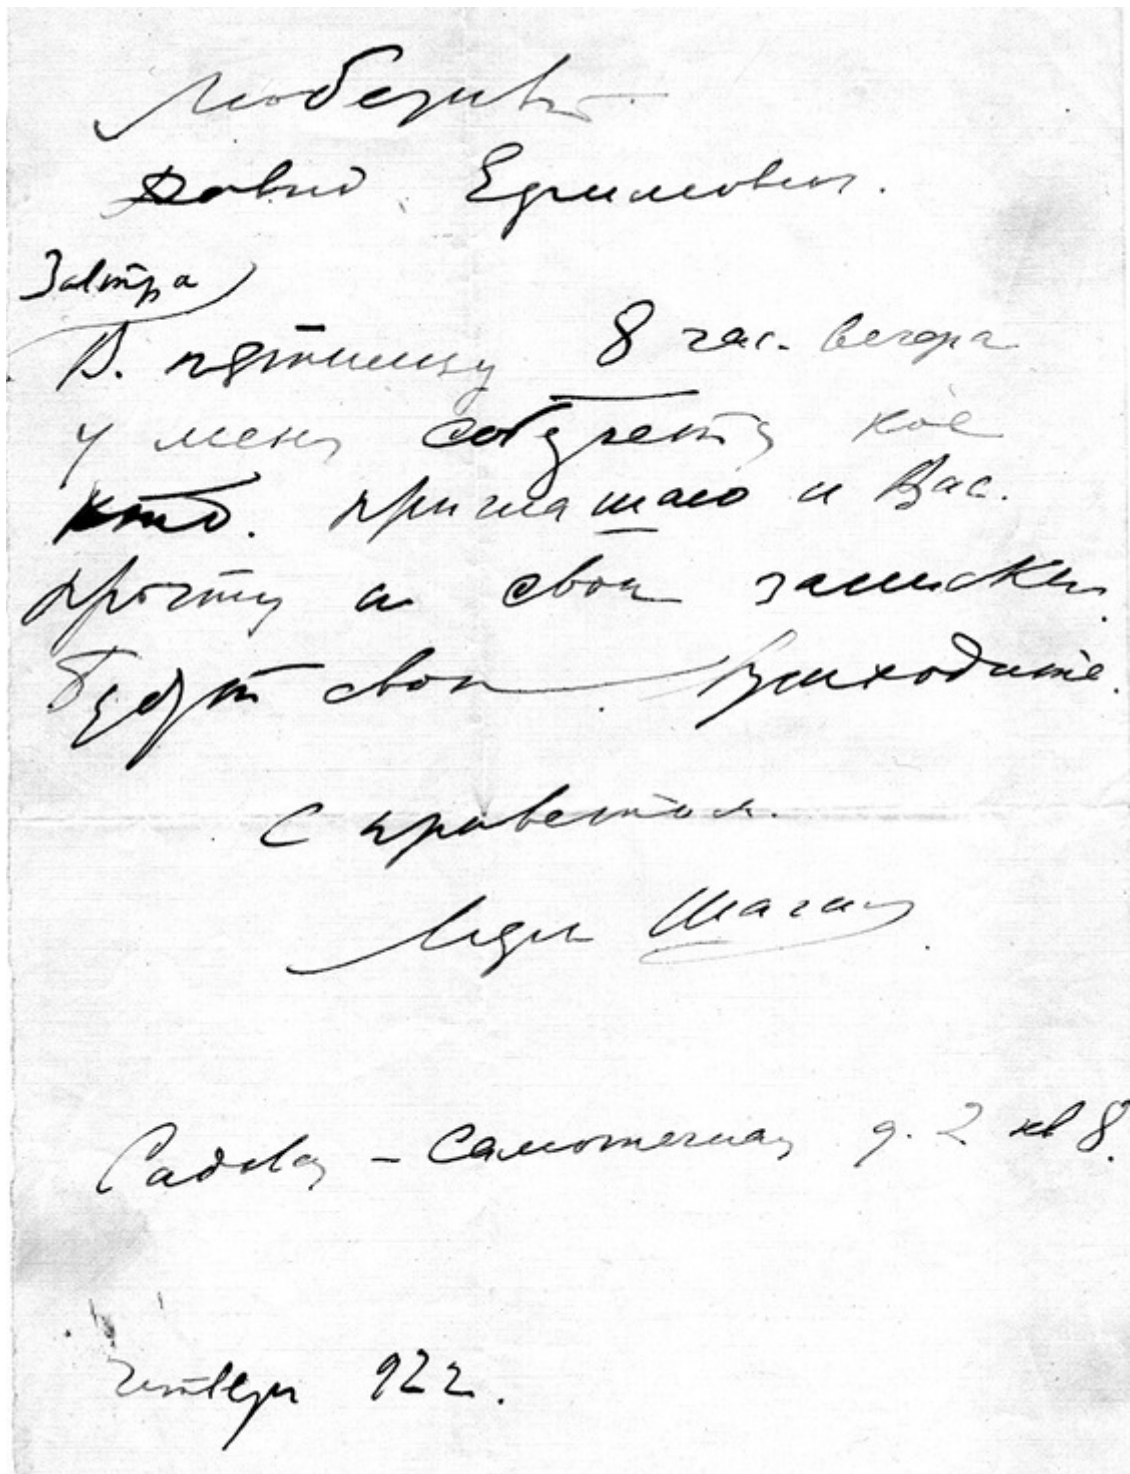 Любезный
Давид Ефимович.
Завтра
В. пятницу 8 час. вечера
у меня соберется кое
кто. приглашаю и Вас.
прочту и свои записки.
будут свои. Приходите.
С приветом.
Марк Шагал
Садовая - Самотечная д. 2 кв 8.
четверг 922.